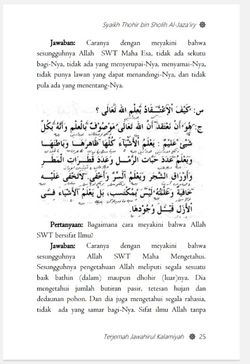 Syaikh Thohir bin Sholih Al-Jaza'iry
Jawaban: Caranya dengan meyakini bahwa
sesungguhnya Allah SWT Maha Esa, tidak ada sekutu
bagi-Nya, tidak ada yang menyerupai-Nya, menyamai-Nya,
tidak punya lawan yang dapat menandingi-Nya, dan tidak
pula ada yang menentang-Nya.
س: كَيْفَ الْاِعْتِقَادُ بِعِلْمِ اللهِ تَعَالَى ؟
ج: هُوَ أَنْ نَعْتَقِدَ أَنَّ اللهَ تَعَالَى مَوْصُوفٌ بِالْعِلْمِ وَأَنَّهُ بِكُلِّ
شَيْءٍ عَلِيْمٌ: يَعْلَمُ الْأَشْيَاءَ كُلَّهَا ظَاهِرَهَا وَبَاطِنَهَا
وَيَعْلَمُ عَدَدَ حَبَّاتِ الرَّمْلِ وَعَدَدَ قَطَرَاتِ الْمَطَرِ
وَأَوْرَاقِ الشَّجَرِ وَيَعْلَمُ السِّرَّ وَأَخْفَى. لَاتَخْفَى عَلَيْهِ
خَافِيَةٌ وَعِلْمُهُ لَيْسَ بِمُكْتَسَبٍ بَلْ يَعْلَمُ الْأَشْيَاءَ فِي
الْأَزَلِ قَبْلَ وُجُودِهَا.
Pertanyaan: Bagaimana cara meyakini bahwa Allah
SWT bersifat Ilmu?
Jawaban: Caranya dengan meyakini bahwa
sesungguhnya Allah SWT Maha Mengetahui.
Sesungguhnya pengetahuan Allah meliputi segala sesuatu
baik bathin (dalam) maupun dhohir (luar)nya. Dia
mengetahui jumlah butiran pasir, tetesan hujan dan
dedaunan pohon. Dan dia juga mengetahui segala rahasia,
tidak ada yang samar bagi-Nya. Sifat Ilmu Allah tanpa
Terjemah Jawahirul Kalamiyah 25